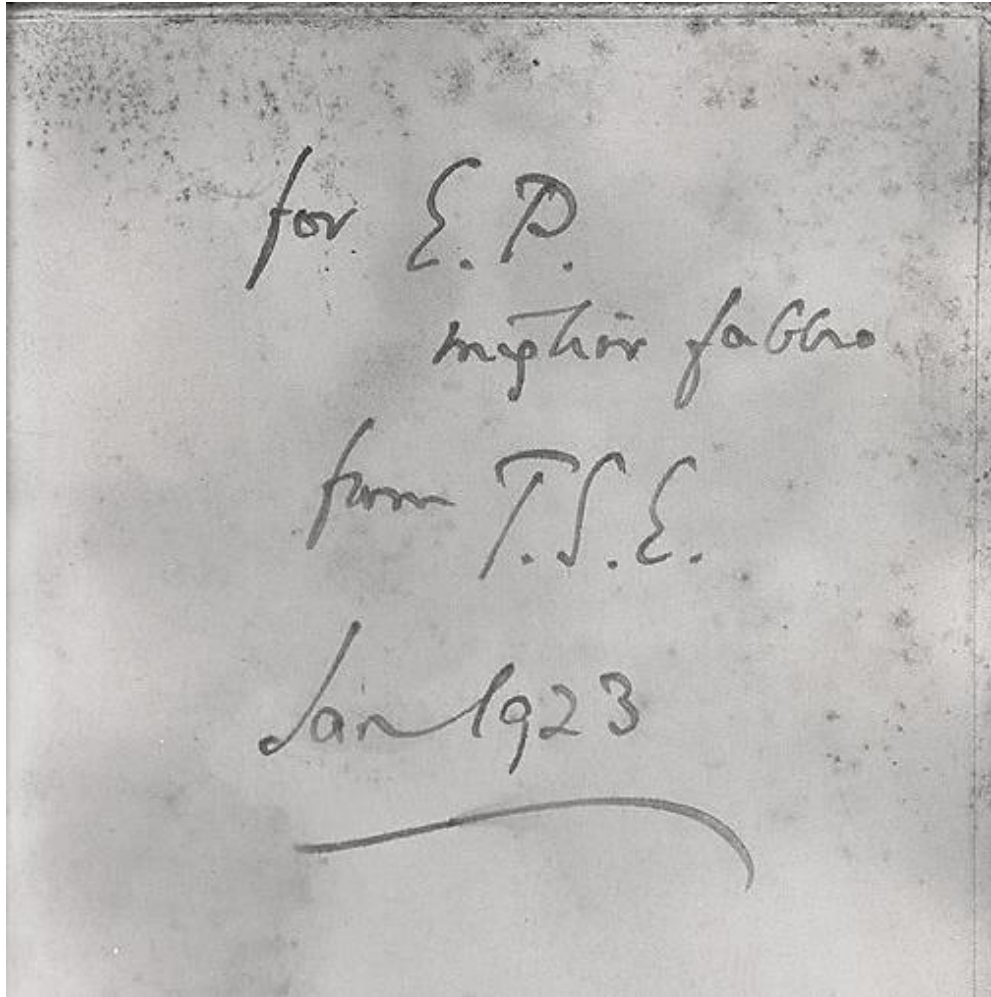 for E. P.
miglior fabbro
from T. S. E.
Jan 1923